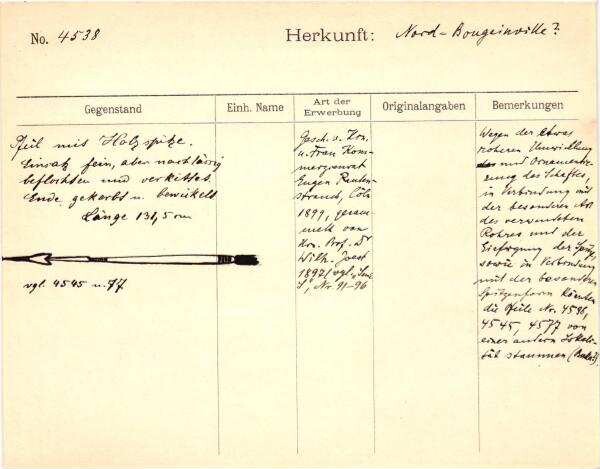 No. 4538
Herkunft: Nord-Bougeinville?
Gegenstand
Einh. Name
Art der
Erwerbung
Originalangaben
Bemerkungen
Pfeil mit Holzspitze.
Einsatz fein, aber nachlässig
beflochten und verkittet
Ende gekerbt u. bewickelt
Länge 131,5 cm
vgl. 4545 u. 77
Gesch. v. Hrn.
u. Frau Kom-
merzienrat
Eugen Rauten-
strauch, Cöln
1899, gesam-
melt von
Hrn. Prof. Dr
Wilh. Joest
1892/vgl.
Nr. 91-96
Wegen der etwas
roheren Umwicklung
und Ornamentie-
rung des Schaftes,
in Verbindung mit
der besonderen Art
des verwendeten
Rohres und der
der Spitze,
sowie in Verbindung
mit der besonderen
Spitzenform könnten
die Pfeile No. 4536,
4545, 4577 von
einer andern Lokali-
tät stammen